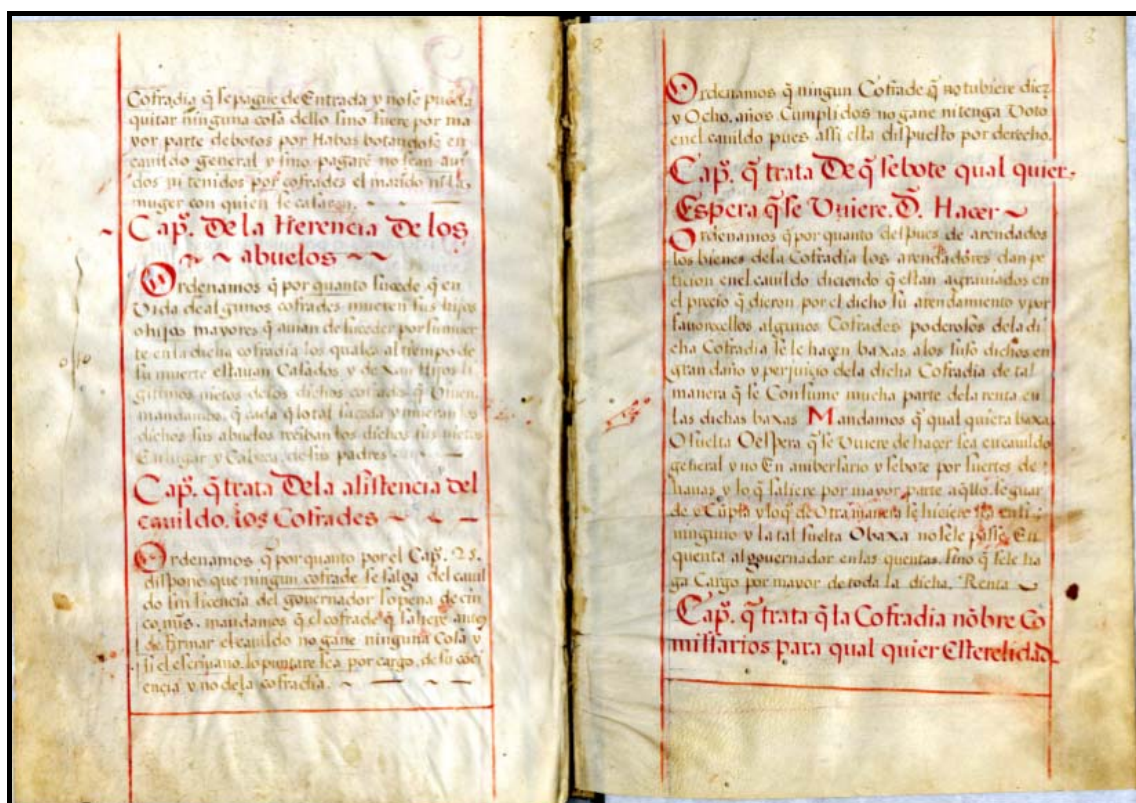 Cofradia q̃ se pague de Entrada y no se pueda
quitar ninguna cosa dello sino fuere por ma
yor parte de botos por Habas botandose en
cauildo general y sino pagarē no sean aui
dos ni tenidos por cofrades el marido ni la
muger con quien se casaren.
Cap̃. De la Herencia De los
abuelos
Ordenamos q̃ por quanto sucede q̃ en
Vida de algunos cofrades mueren sus hijos
o hijos mayores q̃ auian de suceder por su muer
te en la dicha cofradia los quales al tiempo de
su muerte estauan Casados y dexan Hijos li
gittimos nietos de los dichos cofrades q̃ Viuen
mandamos q̃ cada q̃ lo tal suceda y mueran los
dichos sus abuelos reciban los dichos sus nietos
En lugar y Cabeca de sus padres
Cap̃. q̃ trata De la asistencia del
cauildo. los Cofrades
Ordenamos q̃ por quanto por el Cap̃. 25.
dispone que ningun cofrade se salga del cauil
do sin licencia del gouernador so pena de cin
co mrs. mandamos q̃ el cofrade q̃ saliere antes
de firmar el cauildo no gane ninguna Cosa y
si el escriuano. lo puntare sea por cargo. de su cõci
encia y no de la cofradia.
8
8
Ordenamos q̃ ningun Cofrade q̃ no tubiere diez
y Ocho. años Cumplidos no gane ni tenga Voto
en el cauildo pues assi esta dispuesto por derecho.
Cap̃. q̃ trata De q̃ se bote qual quier
Espera q̃ se Vuiere. D. Hacer
Ordenamos q̃ por quanto despues de arendados
los bienes de la Cofradia los arendadores dan pe
ticion en el cauildo diciendo q̃ estan agrauiados en
el precio q̃ dieron por el dicho su arendamiento y por
fauorecellos algunos Cofrades poderosos de la di
cha Cofradia se le hagen baxas a los suso dichos en
gran daño y perjuicio de la dicha Cofradia de tal
manera q̃ se Consume mucha parte de la renta en
las dichas baxas Mandamos q̃ qual quiera baxa
O suelta O espera q̃ se Vuiere de hacer sea en cauildo
general y no En anibersario y se bote por suertes de
hauas y lo q̃ saliere por mayor parte aq̃llo. se guar
de e Cũpla y lo q̃ de Otra manera se hiciere sea en si
ninguno y la tal suelta O baxa no se le passe En
quenta al gouernador en las quentas. sino q̃ se le ha
ga Cargo por mayor de toda la dicha. Renta
Cap̃. q̃ trata q̃ la Cofradia nõbre Co
missarios para qual quier Esterelidad